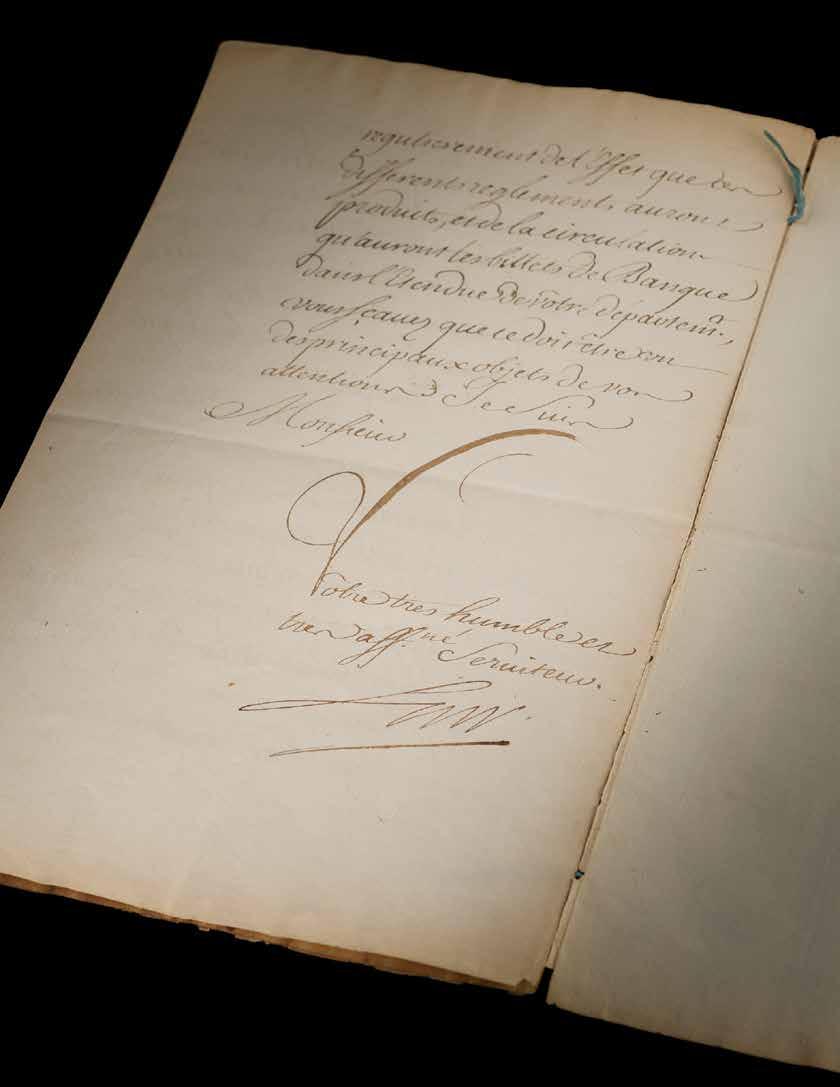 regulierement de l'Effet que ces
differents reglements auront
produits, et de la circulation
qu'auront les billets de Banque
dans l'Etendue de vôtre départem.t,
vous sçauez que ce doit être un
des principaux objets de vos
attentions. Je Suis
Monsieur
Vôtre tres humble et
tres aff.né Seruiteur.
Law